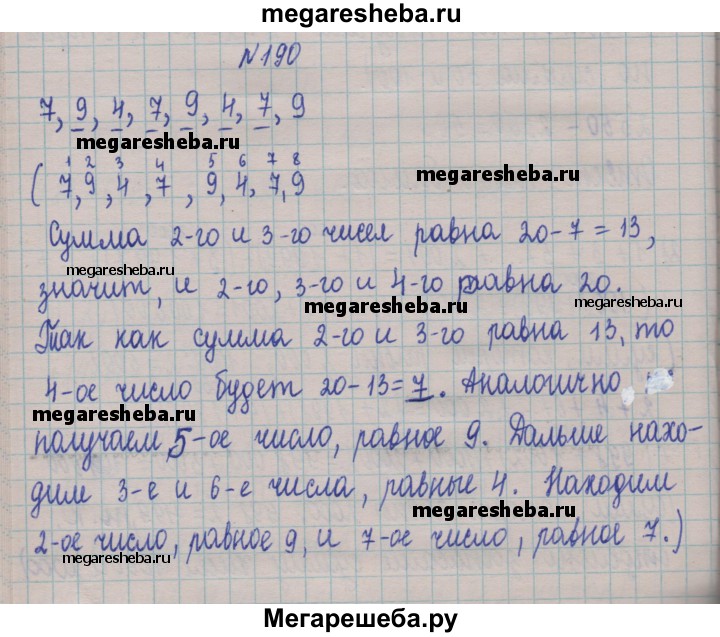 megaresheba.ru
№190
7, 9, 4, 7, 9, 4, 7, 9
megaresheba.ru
1 2 3 4 5 6 7 8
(7, 9, 4, 7, 9, 4, 7, 9
megaresheba.ru
Сумма 2-го и 3-го чисел равна 20-7=13,
megaresheba.ru
значит, и 2-го, 3-го и 4-го равна 20.
megaresheba.ru
megaresheba.ru
Так как сумма 2-го и 3-го равна 13, то
4-ое число будет 20-13=7. Аналогично
megaresheba.ru
получаем 5-ое число, равное 9. Дальше нахо-
дим 3-е и 6-е числа, равные 4. Находим
megaresheba.ru
2-ое число, равное 9, и 7-ое число, равное 7.)
megaresheba.ru
Мегарешеба.ру